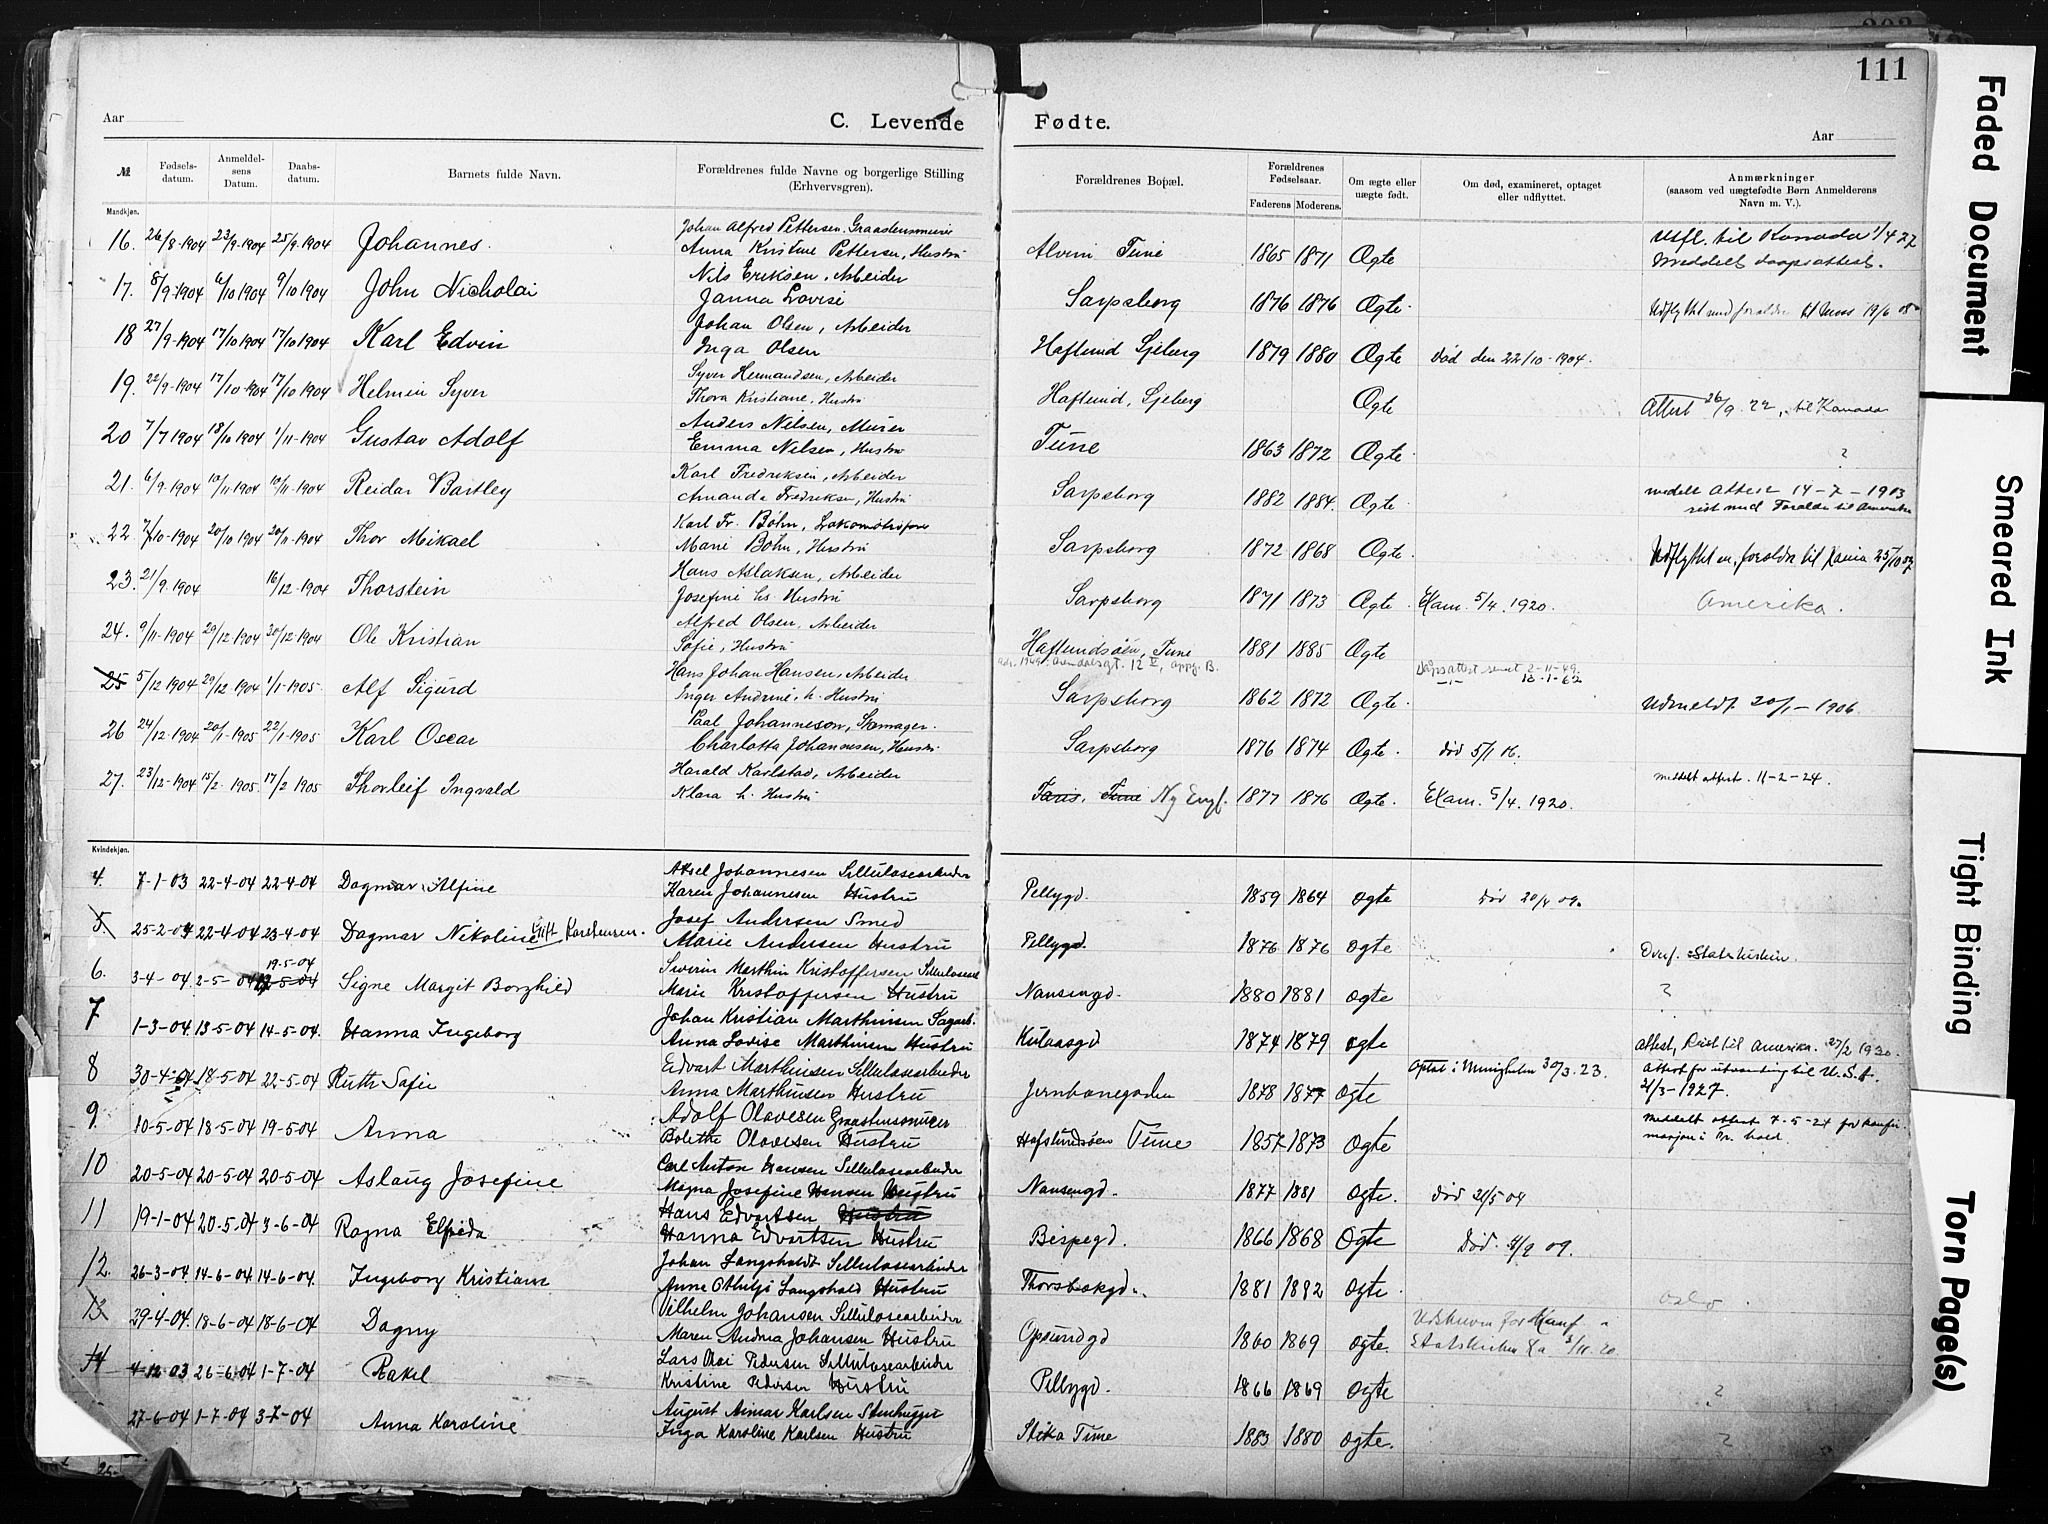 111
Aar
C. Levende Fødte.
Aar
№ Fødselsdatum. Anmeldelsens Datum. Daabsdatum. Barnets fulde Navn. Forældrenes fulde Navne og borgerlige Stilling (Erhvervsgren). Forældrenes Bopæl. Forældrenes Fødselsaar. Faderens Moderens. Om ægte eller uægte født. Om død, examineret, optaget eller udflyttet. Anmærkninger (saasom ved uægtefødte Børn Anmelderens Navn m. V.).
Mandkjøn.
Johan Alfred Pettersen. Utfl. til Kanada 1/4 27
16. 26/8-1904 23/9-1904 25/9-1904 Johannes. Anna Kristine Pettersen, Hustru Alvim Tune 1865 1871 Ægte meddelt daapsattest.
Nils Eriksen, Arbeider
17. 8/9-1904 6/10 1904 9/10 1904 John Nicholai Janna Lovise Sarpsborg 1876 1876 Ægte. 19/6 08
Johan Olsen, Arbeider
18 27/9-1904 17/10 1904 17/10 1904 Karl Edvin Inga Olsen Haflund Sjeberg 1879 1880 Ægte Død den 22/10-1904.
Syver Hermandsen, Arbeider
19. 22/9-1904 17/10-1904 17/10 1904 Helmin Syver Thora Kristiane, Hustru Haflund, Sjeberg Ægte Attest 26/9. 22, til Kanada
Anders Nilsen, Murer
20 7/7 1904 18/10 1904 1/11-1904 Gustav Adolf Emma Nilsen, Hustru Tune 1863 1872 Ægte. ?
Karl Fredriksen, Arbeider medelt Attest 14-7-1903
21. 6/9-1904 10/11-1904 10/11-1904 Reidar Bartley Amanda Fredriksen, Hustru Sarpsborg 1882 1884. Ægte reist med Foraldre til Amerika
Karl Fr. Bøhn,
22 7/10-1904 20/10 1904 20/11-1904 Thor Mikael Marie Bøhn, Hustru Sarpsborg 1872 1868 Ægte. 25/10 07
Hans Aslaksen, Arbeider
23. 21/9-1904 16/12-1904 Thorstein Josefine hs. Hustru Sarpsborg 1871 1873 Ægte Exam. 5/4. 1920. Amerika.
Alfred Olsen, Arbeider
24. 9/11-1904 29/12-1904 30/12-1904 Ole Kristian Sofie, Hustru Haflundsøen, Tune 1881 1885 Ægte
adr. 1949: Arendalsgt. 12 V, oppg. B. Dåpsattest sendt 2-11-49.
Hans Johan Hansen, Arbeider
25 5/12 1904 29/12 1904 1/1-1905. Alf Sigurd Inger Andrine, h. Hustru Sarpsborg 1862 1872 Ægte. Udmeldt 20/1-1906.
Paal Johanneson, Skomager.
26 24/12-1904 20/1-1905 22/1-1905 Karl Oscar Charlotta Johannesen, Hustru Sarpsborg 1876 1874 Ægte. Død 5/1 16.
Harald Karlstad, Arbeider meddelt attest. 11-2-24.
27. 23/12-1904 15/2-1905 17/2 1905 Thorleif Ingvald Klara h. Hustru Tune 1877 1876 Ægte. Exam. 5/4. 1920.
Kvindekjøn.
Aksel Johannesen Sellulosearbeider
4. 7-1-03 22-4-04 22-4-04 Dagmar Alfine Karen Johannesen Hustru Pellygd. 1859 1864 ægte Død 20/4 09.
Josef Andersen Smed
5. 25-2-04 22-4-04 23-4-04 Dagmar Nikoline Gift Marie Andersen Hustru Pellygd. 1876 1876 ægte Overf. Statskirken.
19-5-04 Severin Marthin Kristoffersen
6. 3-4-04 2-5-04 Signe Margit Borghild Marie Kristoffersen Hustru Nansengd. 1880 1881 ægte ?
Johan Kristian Marthinsen Sagarb.
7 1-3-04. 13-5-04 14-5-04. Hanna Ingeborg Anna Lovise Marthinsen Hustru Kulaasgd 1874 1879 ægte Attest, Reist til Amerika. 27/2 1930.
Edvart Marthinsen Sellulosearbeider Attest for utvandring til U.S.A.
8 30-4-04 18-5-04 22-5-04 Ruth Sofie Anna Marthinsen Hustru Jernbanegaden 1878 1877 ægte 30/3. 23. 21/3-1927.
Adolf Olavesen meddelt attest 7-5-24 for konfirmasjon i
9. 10-5-04 18-5-04 19-5-04 Anna Bolethe Olavesen Hustru Hafslundsøen Tune 1857 1873 Ægte
Carl Anton Hansen Sellulosearbeider
10 20-5-04 20-5-04 20-5-04 Aslaug Josefine Magna Josefine Hansen Hustru Nansengd. 1877 1881 ægte. Død 21/5 04
Hans Edvartsen Hustru
11 19-1-04 20-5-04 3-6-04 Ragna Elfrida Hanna Edvartsen Hustru Bispegd. 1866 1868 Ægte Død. 09.
Johan Langsholdt Sellulosearbeider
12. 26-3-04 14-6-04 14-6-04. Ingeborg Kristiane Anne Othilje Langshold Hustru 1881 1892 Ægte.
Vilhelm Johansen Sellulosearbeider Oslo.
13 29-4-04. 18-6-04 18-6-04 Dagny Maren Andrea Johansen Hustru Opsundgd 1860 1869 ægte. Udskreven for Konf. i
Lars Olai Pedersen Sellulosearbeider 3/11. 20.
14 4-12-03 26-6-04 1-7-04 Rakel Kristine Pedersen Hustru Pellygd. 1866 1869 ægte ?
August Karlsen Stenhugger
27-6-04 1-7-04 3-7-04 Anna Karoline Inga Karoline Karlsen Hustru Tune 1883 1880 ægte. ?
Faded Document
Smeared Ink
Tight Binding
Torn Page(s)